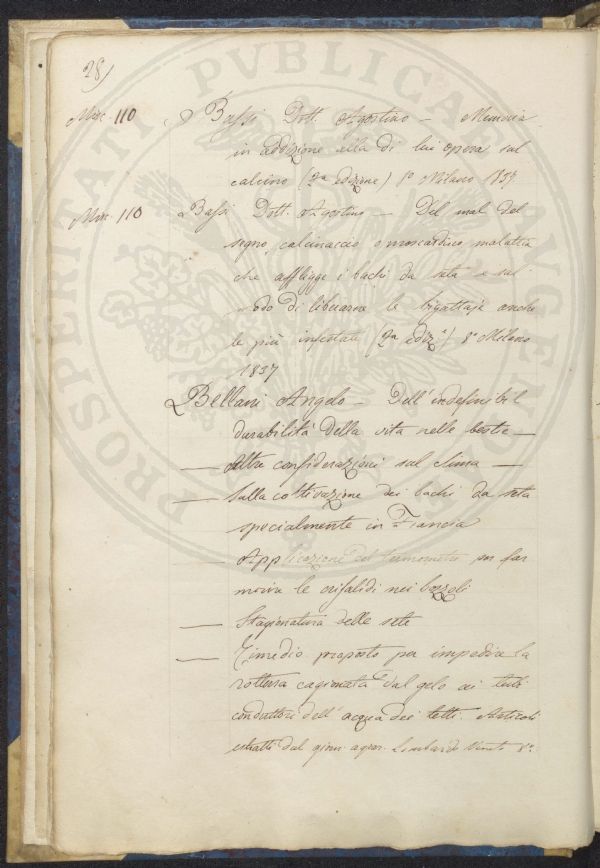 28)
Misc. 110 Bassi Dott. Agostino — Memoria
in addizione alla di lui opera sul
calcino (2a edizione) 8o Milano 1837
Misc. 110 Bassi Dott. Agostino — Del mal del
segno, calcinaccio o moscardino malattia
che affligge i bachi da seta e sul
modo di liberarne le bigattaje anche
le più infestate (2a ediz.e) 8o Milano
1837
Bellani Angelo — Dell'indefinibil
durabilità della vita nelle bestie —
— Altre considerazioni sul clima —
— Sulla coltivazione dei bachi da seta
specialmente in Francia
— Applicazione del termometro per far
morire le crisalidi nei bozzoli
— Stagionatura delle sete
— Rimedio proposto per impedire la
rottura cagionata dal gelo ai tubi
conduttori dell'acqua dei tetti. Articoli
estratti dal giorn. agrar. Lombardo Veneto 8o
PROSPERITATI PVBLICAE AVGENDAE